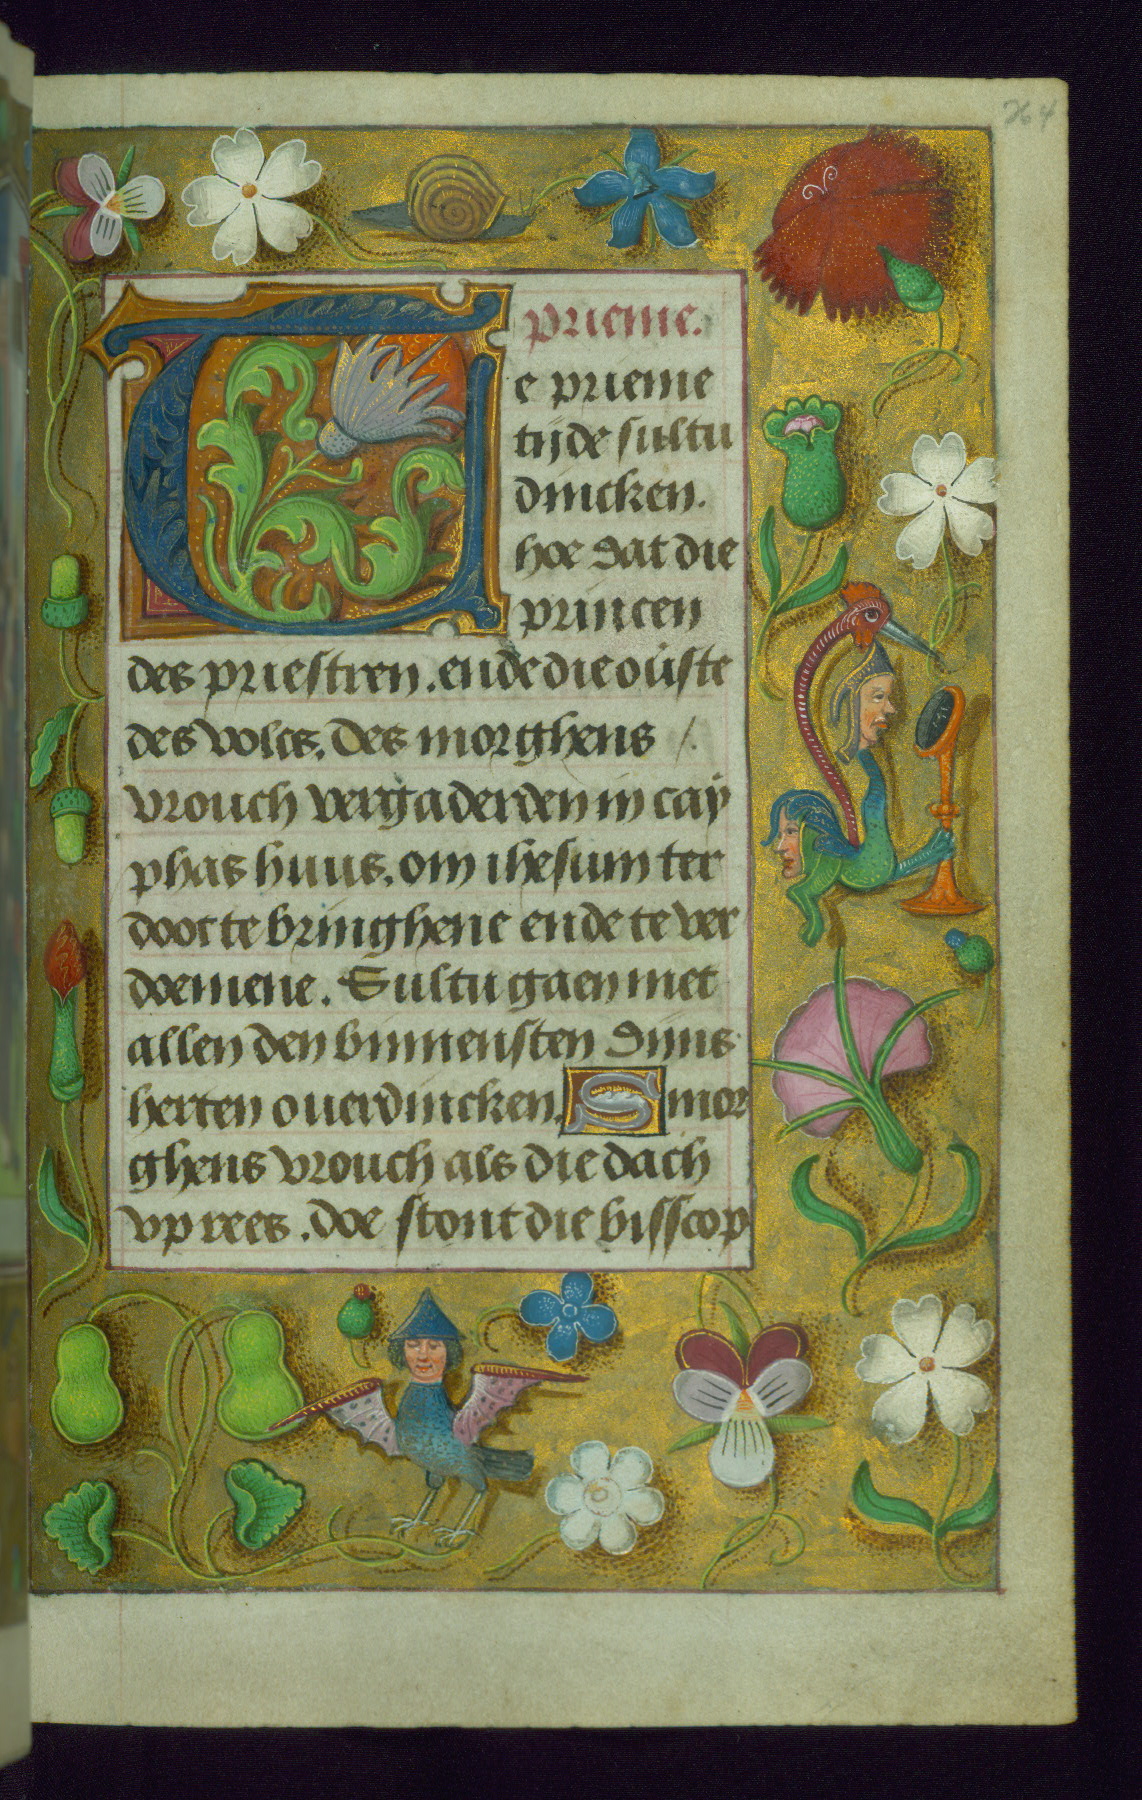 264
prieme.
Te prieme
tijde sultu
dincken.
hoe dat die
princen
des priestren. ende die oùste
des volcs. des morghens /.
vrouch vergaderden in caỳ
phas huus. om ihesum ter
doot te bringhene ende te ver
doemene. Sultu gaen met
allen den binnensten dijns
herten overdincken. Smor
ghens vrouch als die dach
vp rees. doe stont die bisscop